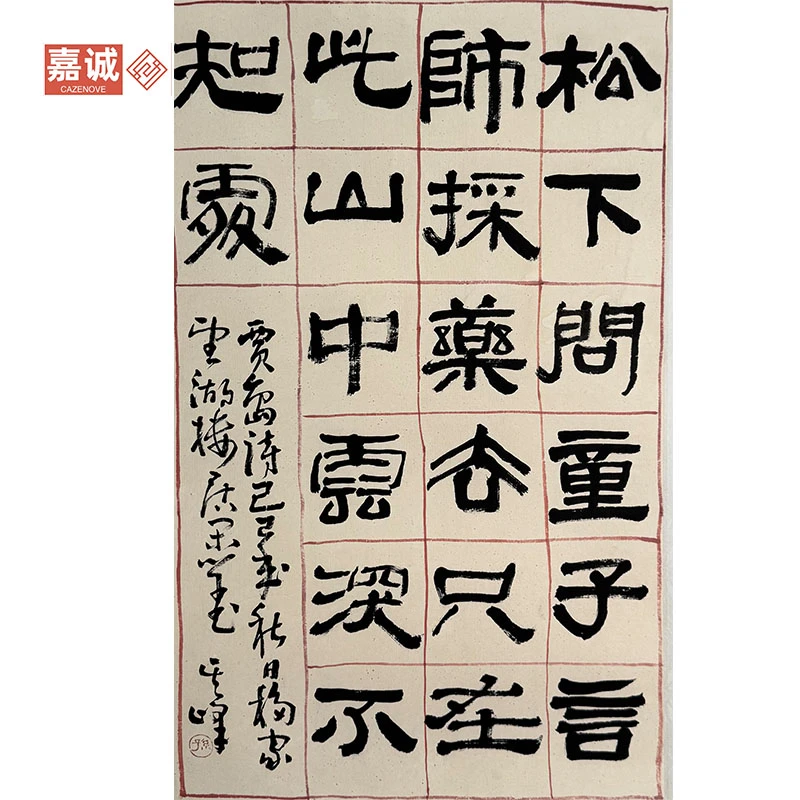 嘉诚
CAZENOVE
松下問童子言
師採藥去只在
此山中雲深不
知處
賈島詩己巳年秋日
望湖樓居 其峰